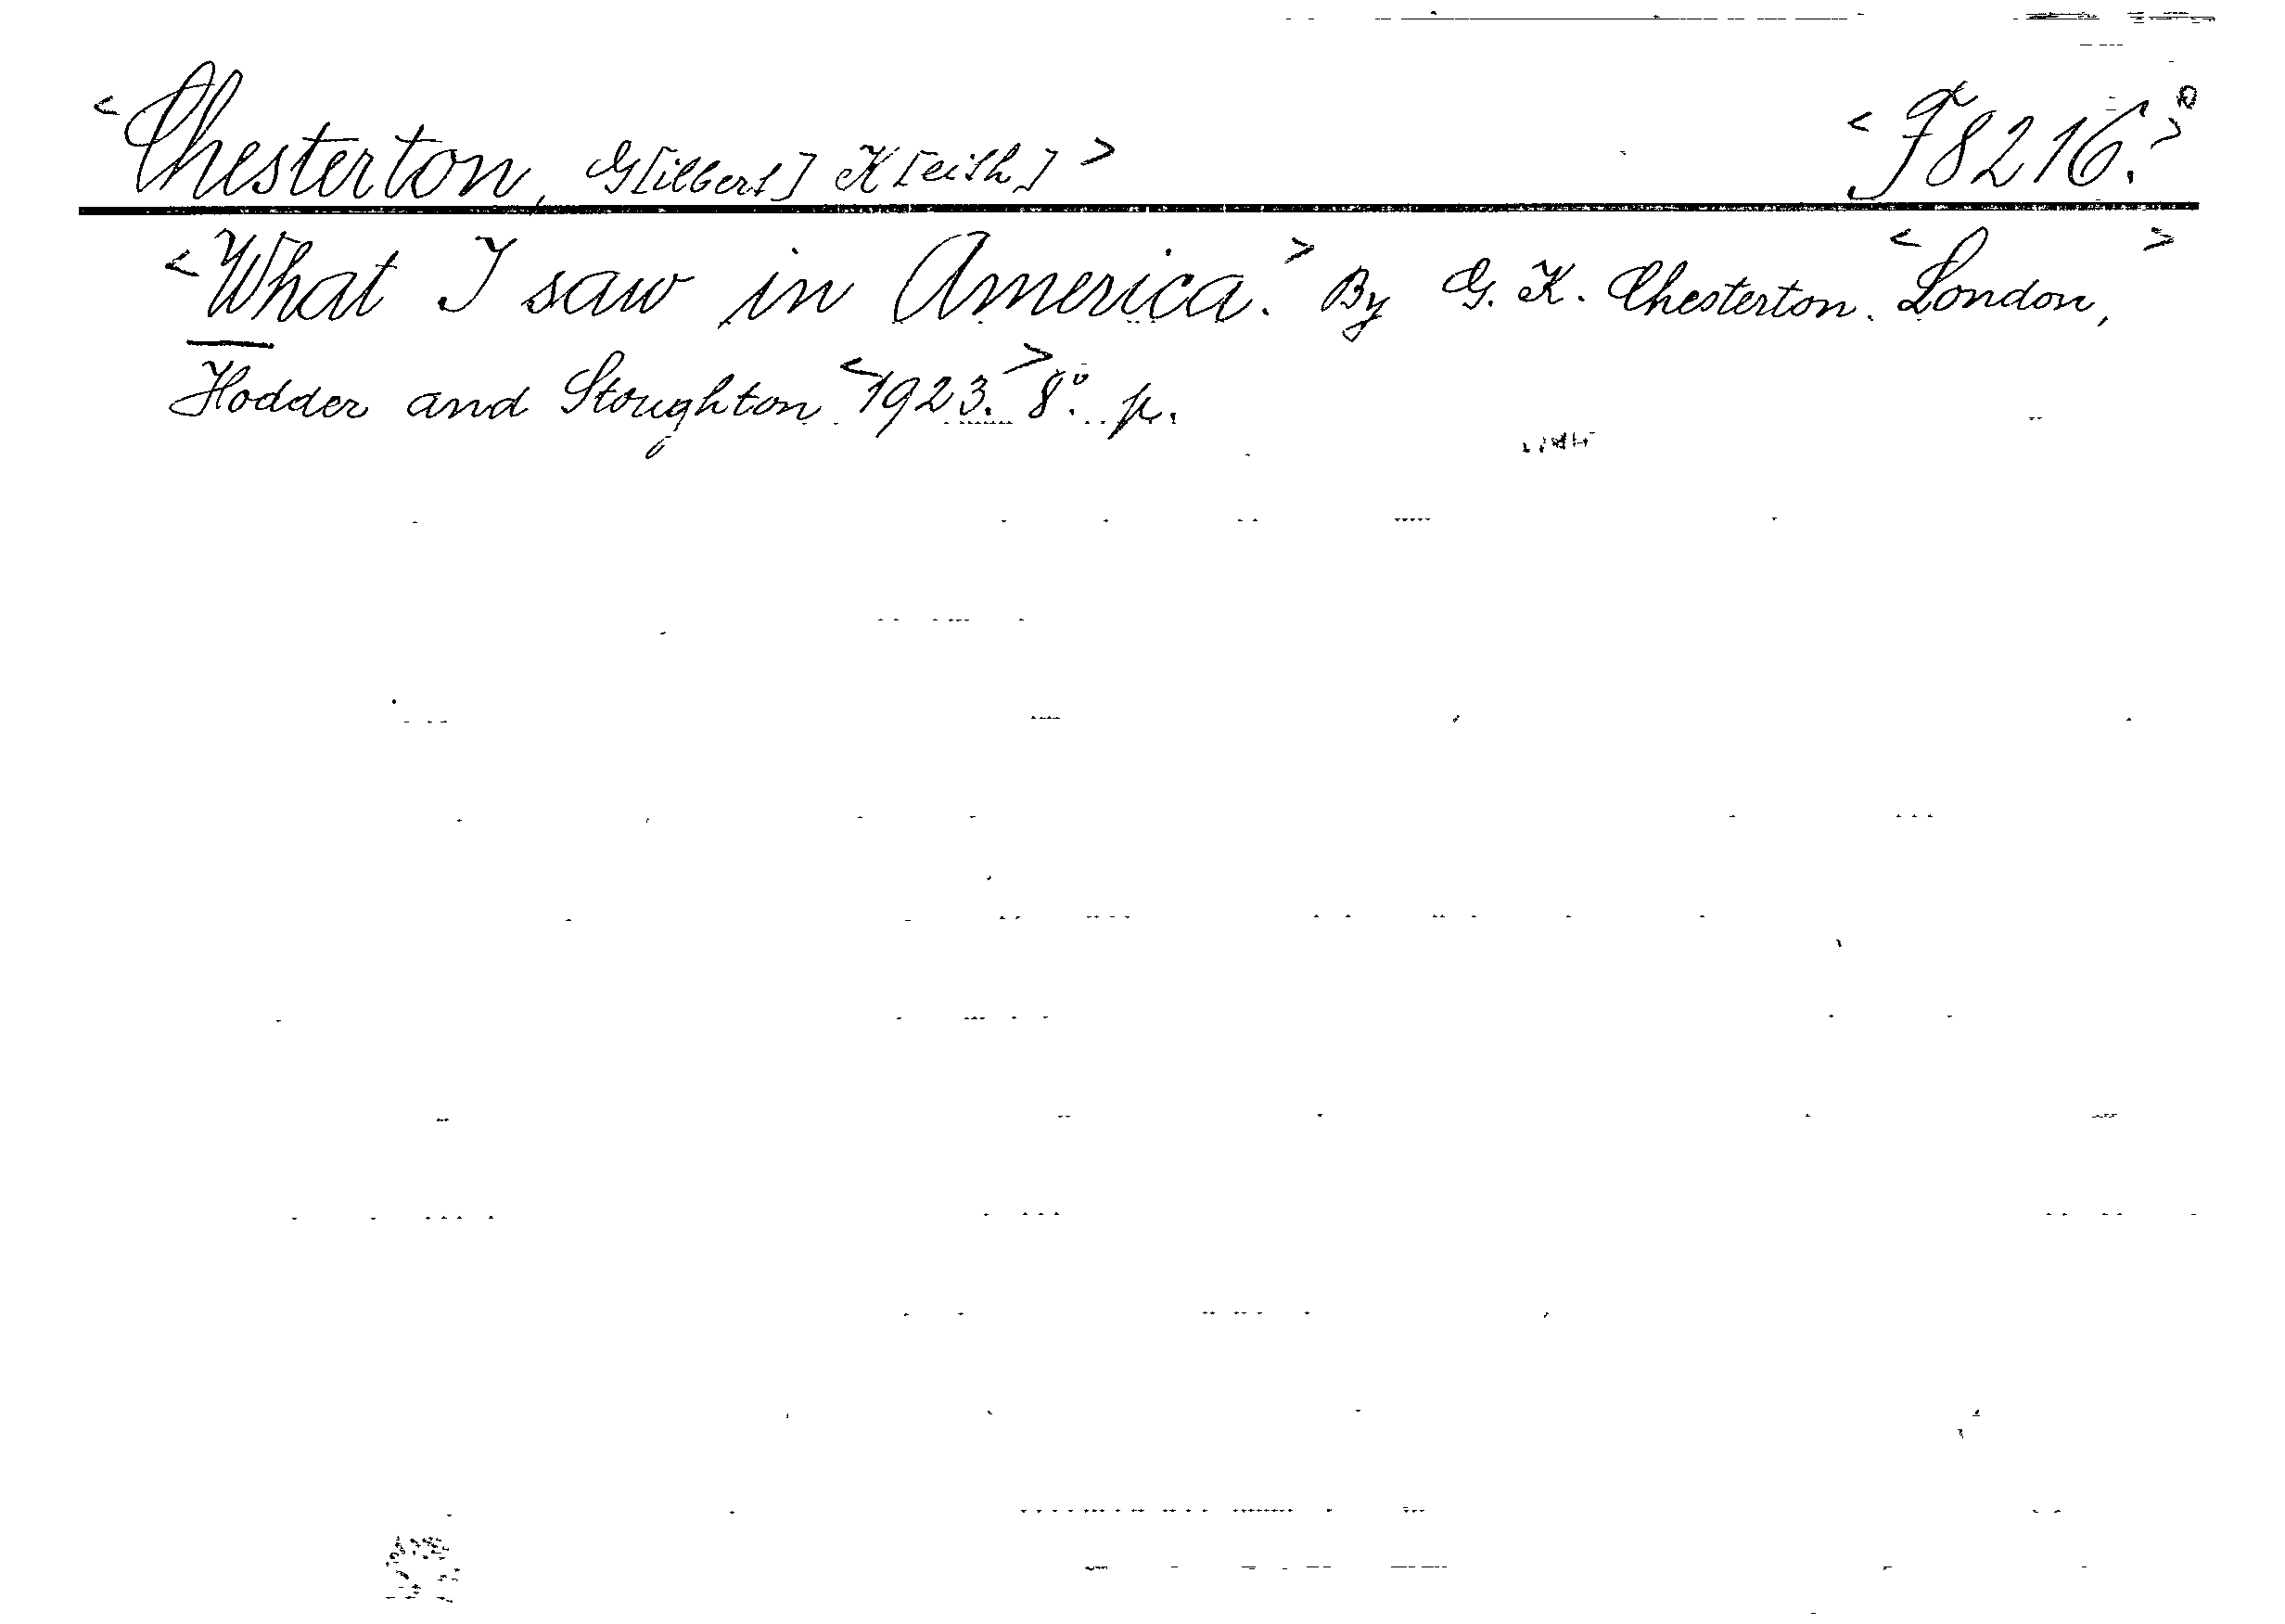 <Chesterton, G[ilbert] K[eith]> <F8216.>
<What I saw in America.> By G. K. Chesterton. <London,>
Hodder and Stoughton <1923.> 8°. p.